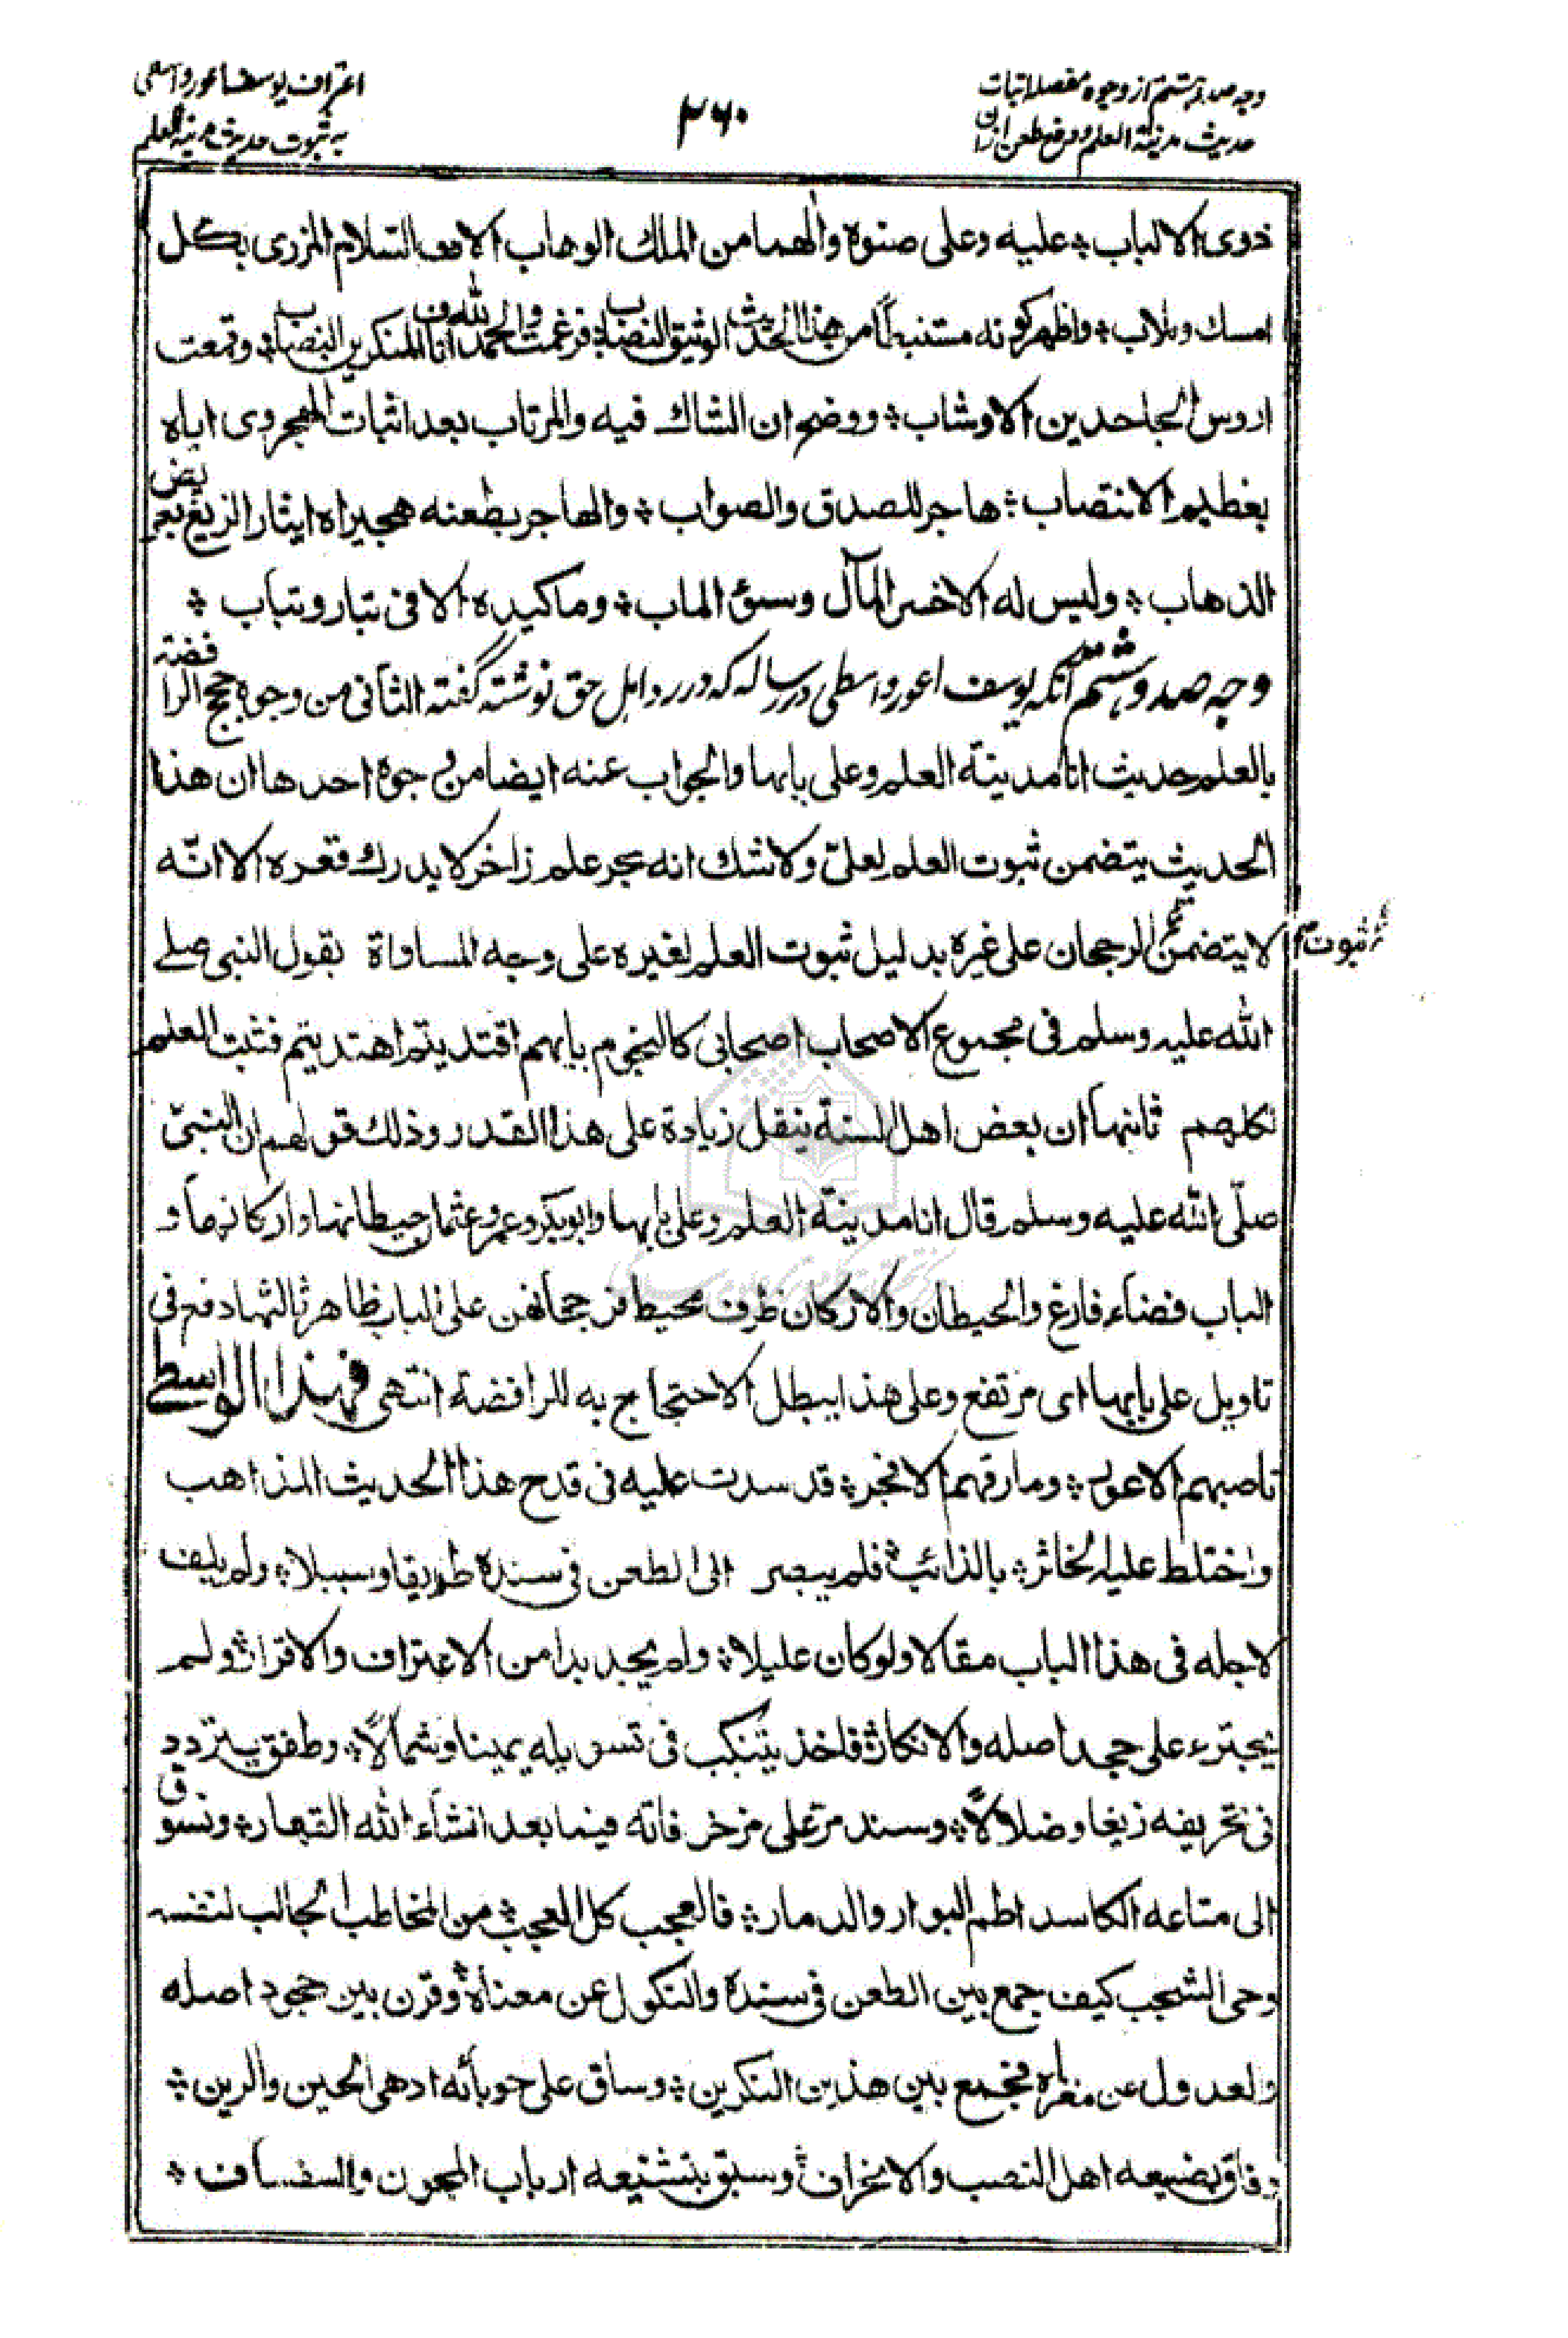 وجه صد و هشتم از وجوه مفصله اثبات
حدیث مدینة العلم و دفع طعن ازان
۲۶۰
اعتراف یوسف اعور واسطی
به ثبوت حدیث مدینة العلم
ذوى الالباب ۞ عليه وعلى صنوه والهما من الملك الوهاب الاف السلام المزرى بكل
امسك وملاب ۞ واظهر كونه مستنبطاً من هذا الحديث الوثيق النصاب ۞ فرغمت والحمد لله اناف المنكرين النصاب ۞ وقمعت
اروس الجاحدين الاوشاب ۞ ووضح ان الشاك فيه والمرتاب بعد اثبات الفيروزآبادى اياه
بعظيم الانتصاب ۞ هاجر للصدق والصواب ۞ والهاجر بطعنه هجيراه ايثار الزيغ بعض
الذهاب ۞ وليس له الاخسر المآل وسوئ الماب ۞ وما كيده الا فى تبار وتباب ۞
وجه صد و هشتم آنکه یوسف اعور واسطی در رساله که در رد اهل حق نوشته گفته الثانى من وجوه حجج الرافضة
بالعلم حديث انا مدينة العلم وعلى بابها والجواب عنه ايضا من وجوه احدها ان هذا
الحديث يتضمن ثبوت العلم لعلىّ ولا شك انه بحر علم زاخر لا يدرك قعره الا انّه
لا يتضمن الرجحان على غيره بدليل ثبوت العلم لغيره على وجه المساواة بقول النبى صلى
ثبوت
الله عليه وسلم فى مجموع الاصحاب اصحابى كالنجوم بايهم اقتديتم اهتديتم فثبت العلم
لكلهم ثانيها ان بعض اهل السنة ينقل زيادة على هذا القدر وذلك قولهم ان النبىّ
صلّى الله عليه وسلم قال انا مدينة العلم وعلى بابها وابوبكر وعمر وعثمان حيطانها واركانها و
الباب فضاء فارغ والحيطان والاركان ظرف محيط فرجحانهن على الباب ظاهر ثالثها دفع فى
تاويل على بابها اى مرتفع وعلى هذا يبطل الاحتجاج به للرافضة انتهى فهذا الواسطى
ناصبهم الاعور ۞ ومارقهم الافجر ۞ قد سدت عليه فى قدح هذا الحديث المذاهب
واختلط عليه الخاثر ۞ بالذائب ۞ فلم يبصر الى الطعن فى سنده طريقا وسبيلا ۞ ولم يلف
لاجله فى هذا الباب مقالا ولو كان عليلا ۞ ولم يجد بدا من الاعتراف والاقرار ۞ ولم
يجترء على جحد اصله والانكار ۞ فاخذ يتنكب فى تسويله يمينا وشمالاً ۞ وطفق يتردد
فى تحريفه زيغا وضلالاً ۞ وسندمر على مزخرفاته فيما بعد انشاء الله القهار ۞ ونسوق
الى متاعه الكاسد اطم البوار والدمار ۞ فالعجب كل العجب ۞ من المخاطب الجالب لنفسه
وحى الشجب كيف جمع بين الطعن فى سنده والنكول عن معناه ۞ وقرن بين جحود اصله
والعدول عن مغزاه فجمع بين هذين النكرين ۞ وساق على حوبائه ادهى الحين والرين ۞
وفاق بصنيعه اهل النصب والانحراف ۞ وسبق بتشنيعه ارباب المجون والسفساف ۞